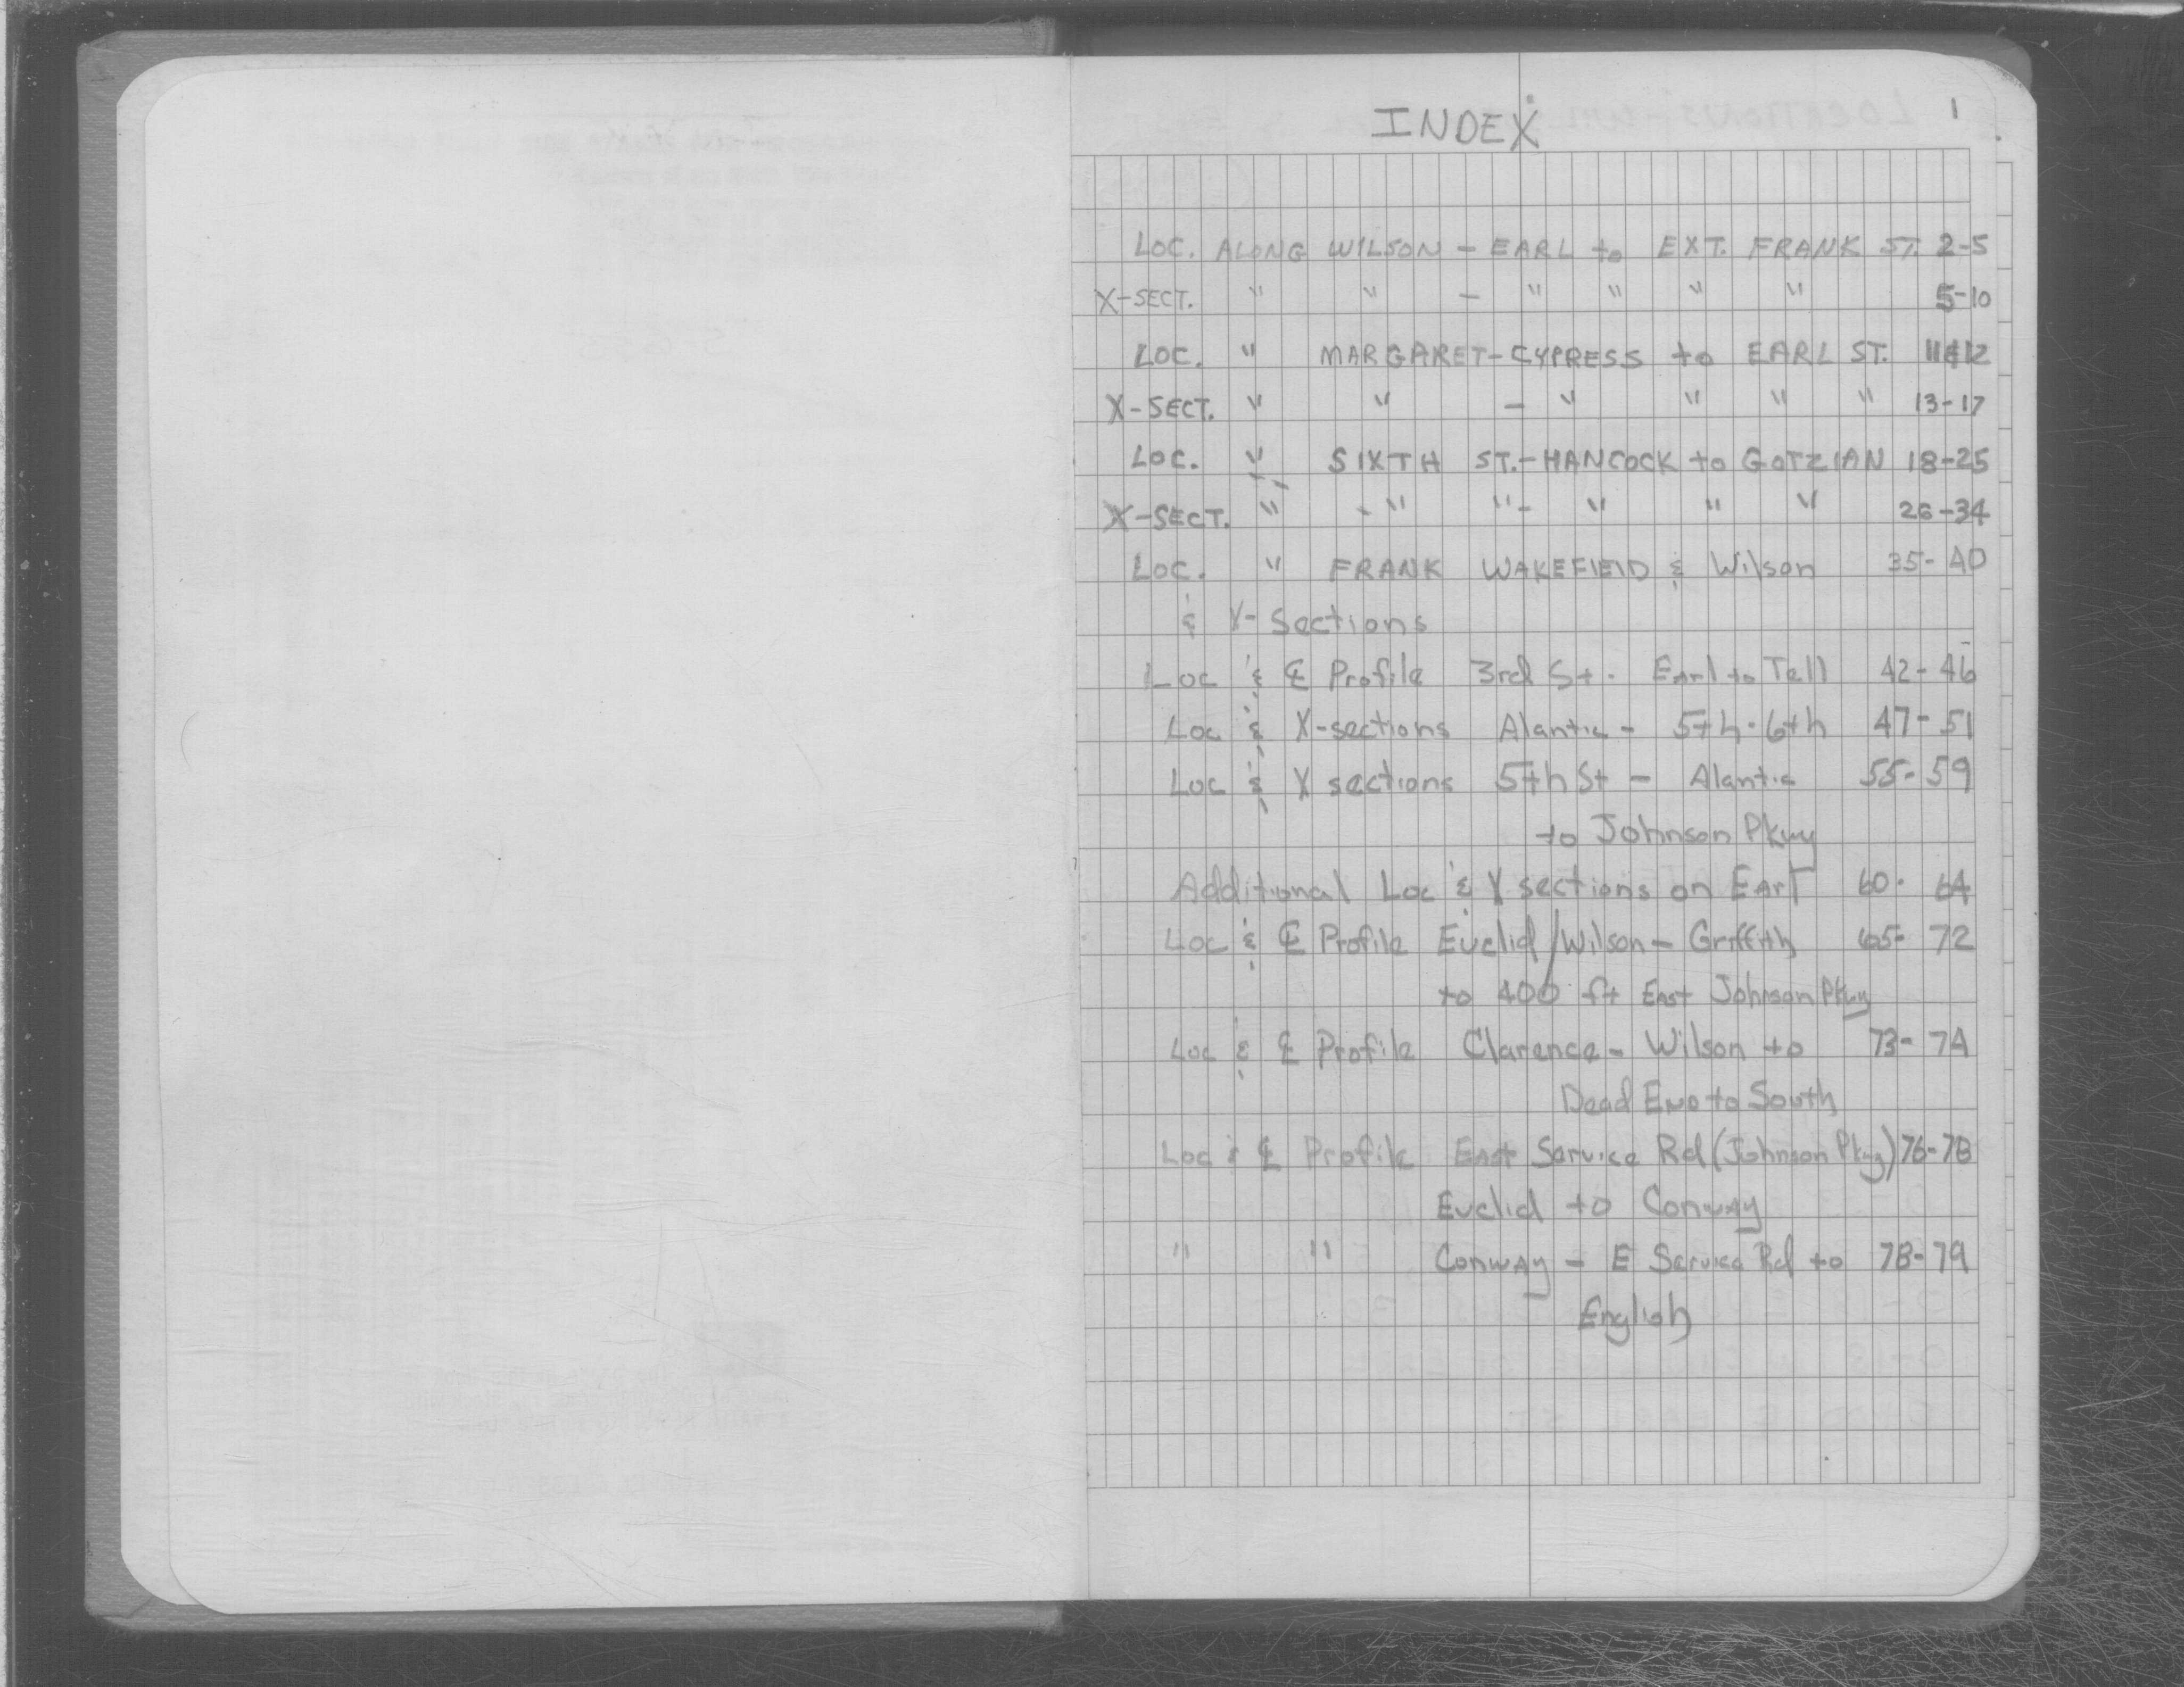 1
INDEX
LOC. ALONG WILSON - EARL to EXT. FRANK ST. 2-5
X-SECT. " " - " " " " 5-10
LOC. " MARGARET - CYPRESS to EARL ST. 11&12
X-SECT. " " - " " " " 13-17
LOC. " SIXTH ST. - HANCOCK to GOTZIAN 18-25
X-SECT. " - " " - " " " 26-34
LOC. " FRANK WAKEFIELD & Wilson 35-40
& X-Sections
Loc & ℄ Profile 3rd St. Earl to Tell 42-46
Loc & X-sections Alantic - 5th-6th 47-51
Loc & X sections 5th St - Alantic 55-59
to Johnson Pkwy
Additional Loc & X sections on Earl 60-64
Loc & ℄ Profile Euclid/Wilson - Griffith 65-72
to 400 ft East Johnson Pkwy
Loc & ℄ Profile Clarence - Wilson to 73-74
Dead End to South
Loc & ℄ Profile East Service Rd (Johnson Pkwy) 76-78
Euclid to Conway
" " Conway - E Service Rd to 78-79
English